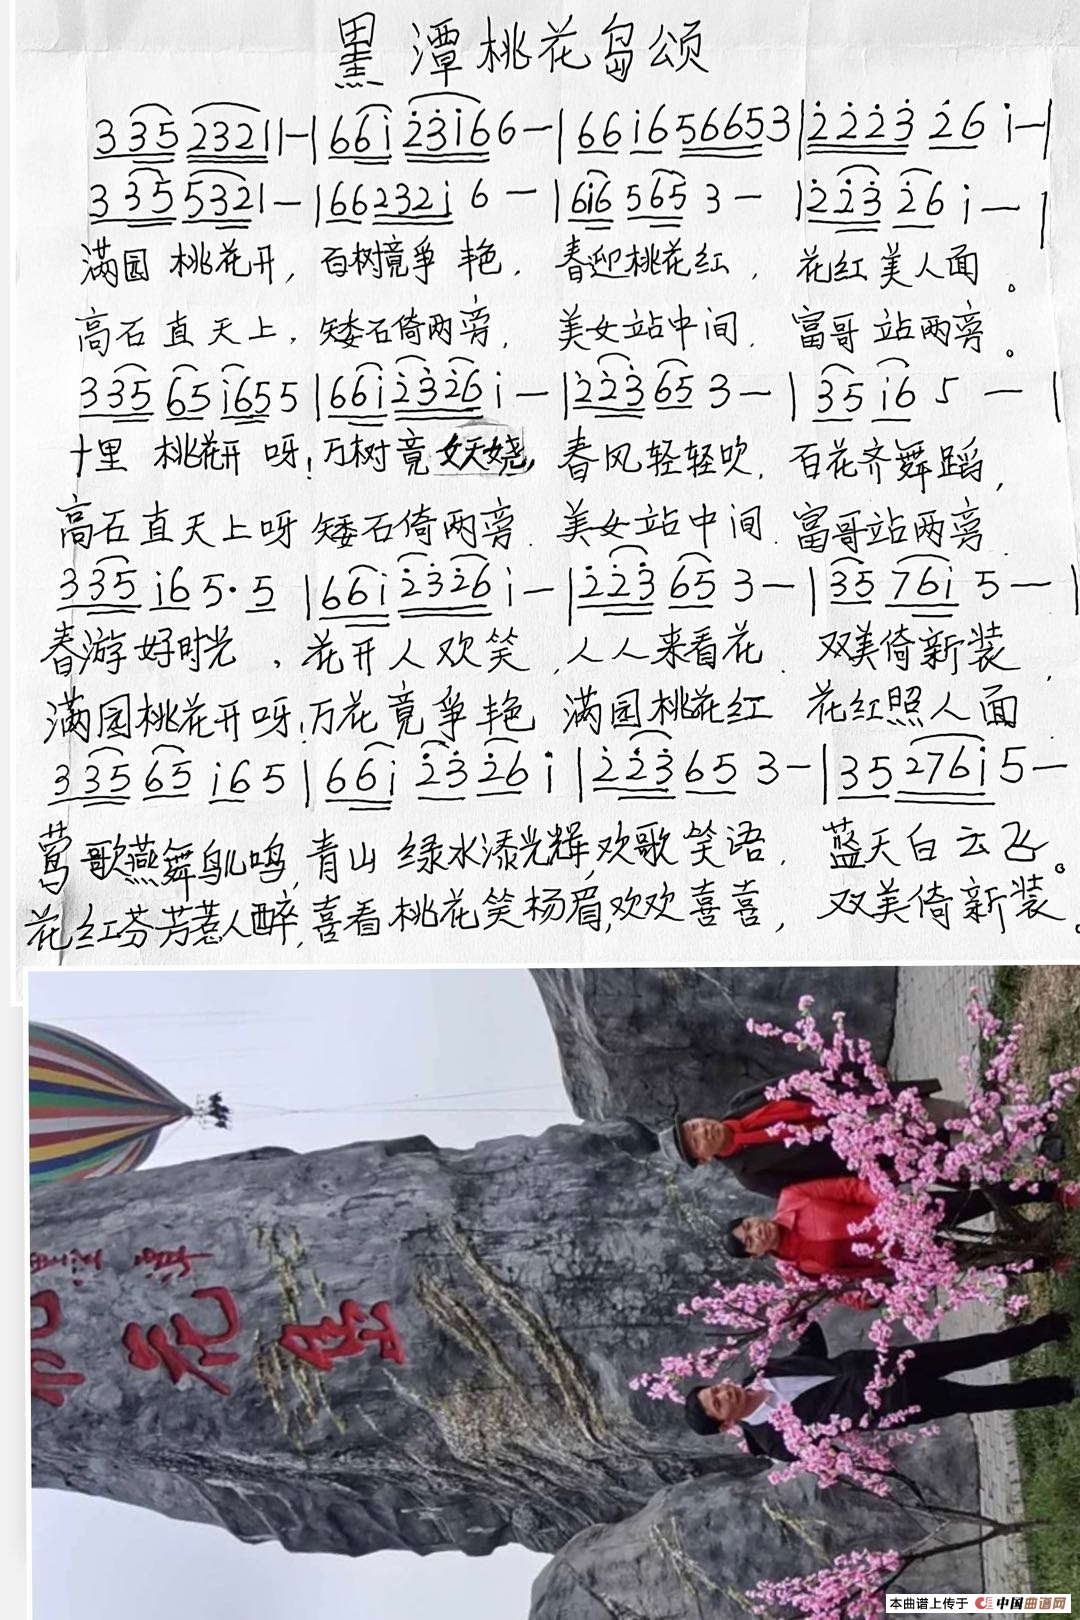 黑潭桃花岛颂
3 3 5 2 3 2 1 1 - | 6 6 i 2̇ 3̇ i 6 6 - | 6 6 i 6 5 6 6 5 3 | 2̇ 2̇ 2̇ 3̇ 2̇ 6 i - |
3 3 5 5 3 2 1 - | 6 6 2 3 2 i 6 - | 6 i 6 5 6 5 3 - | 2̇ 2̇ 3̇ 2̇ 6 i - |
满园桃花开，百树竟争艳．春迎桃花红，花红美人面。
高石直天上．矮石倚两旁．美女站中间．富哥站两旁。
3 3 5 6 5 i 6 5 5 | 6 6 i 2̇ 3̇ 2̇ 6 i - | 2̇ 2̇ 3̇ 6 5 3 - | 3 5 i 6 5 - |
十里桃花开呀！万树竟妖娆，春风轻轻吹．百花齐舞蹈，
高石直天上呀矮石倚两旁．美女站中间．富哥站两旁．
3 3 5 i 6 5· 5 | 6 6 i 2̇ 3̇ 2̇ 6 i - | 2̇ 2̇ 3̇ 6 5 3 - | 3 5 7 6 i 5 - |
春游好时光、花开人欢笑，人人来看花．双美倚新装，
满园桃花开呀！万花竟争艳满园桃花红花红照人面
3 3 5 6 5 i 6 5 | 6 6 i 2̇ 3̇ 2̇ 6 i | 2̇ 2̇ 3̇ 6 5 3 - | 3 5 2 7 6 i 5 -
莺歌燕舞鸟儿鸣，青山绿水添光辉，欢歌笑语．蓝天白云飞。
花红芬芳惹人醉，喜看桃花笑杨眉，欢欢喜喜，双美倚新装。
黑潭
桃花岛
本曲谱上传于 中国曲谱网